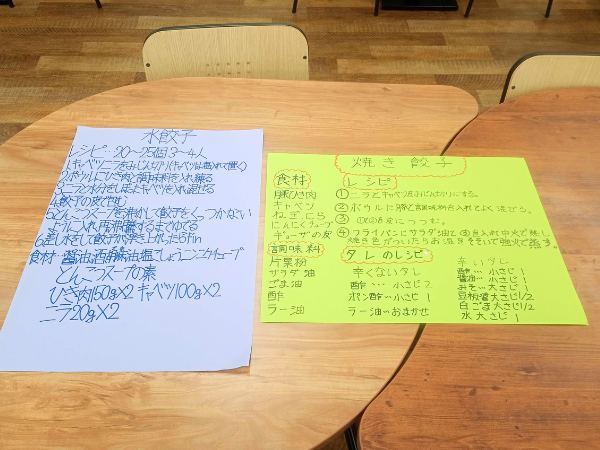 水餃子
レシピ:20〜25個 3〜4人
1キャベツニラをみじん切り(キャベツは塩入れて置く)
2ボウルにひき肉と調味料を入れ練る
3ニラと水分をしぼったキャベツを入れ混ぜる
4餃子の皮で包む
5とんこつスープを沸かして餃子をくっつかない
ように入れ再沸騰するまでゆでる
6差し水をして餃子が浮き上がったらfin
食材:醤油酒胡麻油塩こしょうニンニクチューブ
とんこつスープの素
ひき肉150g×2 キャベツ100g×2
ニラ20g×2
焼き餃子
食材
豚ひき肉
キャベツ
ねぎ にら
にんにくチューブ
ギョーザの皮
調味料
片栗粉
サラダ油
ごま油
酢
ラー油
レシピ
①ニラとキャベツをみじん切りにする。
②ボウルに豚と調味料を入れてよく混ぜる。
③ ①②を皮につつむ。
④フライパンにサラダ油と③を入れ中火で熱し
焼き色がついたらお湯をそそいで強火で蒸す。
タレのレシピ
辛くないタレ
酢…小さじ2
ポン酢…小さじ1
ラー油…おまかせ
辛いタレ
酢…小さじ1
醤油…小さじ1
みそ…大さじ1
豆板醤大さじ1/2
白ごま大さじ1/2
水大さじ1